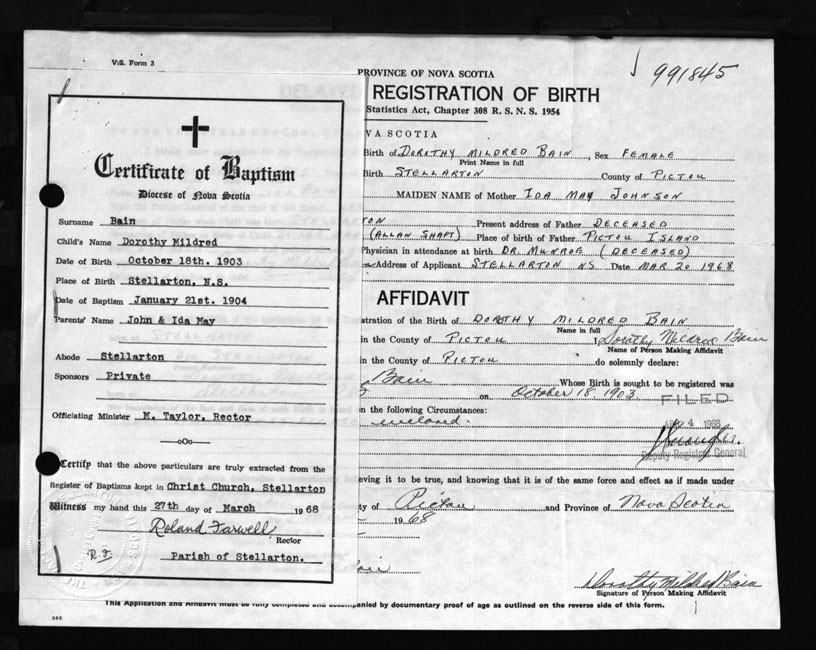 V.S. Form 3
991845
Certificate of Baptism
Diocese of Nova Scotia
Surname Bain
Child's Name Dorothy Mildred
Date of Birth October 18th. 1903
Place of Birth Stellarton, N.S.
Date of Baptism January 21st. 1904
Parents' Name John & Ida May
Abode Stellarton
Sponsors Private
Officiating Minister M. Taylor, Rector
Certify that the above particulars are truly extracted from the
Register of Baptisms kept in Christ Church, Stellarton
Witness my hand this 27th day of March 1968
Roland Farwell
Rector
R.F
Parish of Stellarton.
PROVINCE OF NOVA SCOTIA
REGISTRATION OF BIRTH
Statistics Act, Chapter 308 R. S. N. S. 1954
VA SCOTIA
Birth of DOROTHY MILDRED BAIN, Sex FEMALE
Print Name in full
Birth STELLARTON County of PICTOU
MAIDEN NAME of Mother IDA MAY JOHNSON
TON Present address of Father DECEASED
(ALLAN SHAFT) Place of birth of Father PICTOU ISLAND
Physician in attendance at birth DR. MUNROE (DECEASED)
Address of Applicant STELLARTON NS Date MAR 20 1968
AFFIDAVIT
stration of the Birth of DOROTHY MILDRED BAIN
Name in full
in the County of PICTOU I Dorothy Mildred Bain
Name of Person Making Affidavit
in the County of PICTOU do solemnly declare:
Bain Whose Birth is sought to be registered was
on October 18, 1903.
FILED
n the following Circumstances:
4 1968
Deputy Registrar General
eving it to be true, and knowing that it is of the same force and effect as if made under
ty of Pictou and Province of Nova Scotia
1968
Dorothy Mildred Bain
Signature of Person Making Affidavit
This Application and Affidavit must be fully completed and accompanied by documentary proof of age as outlined on the reverse side of this form.